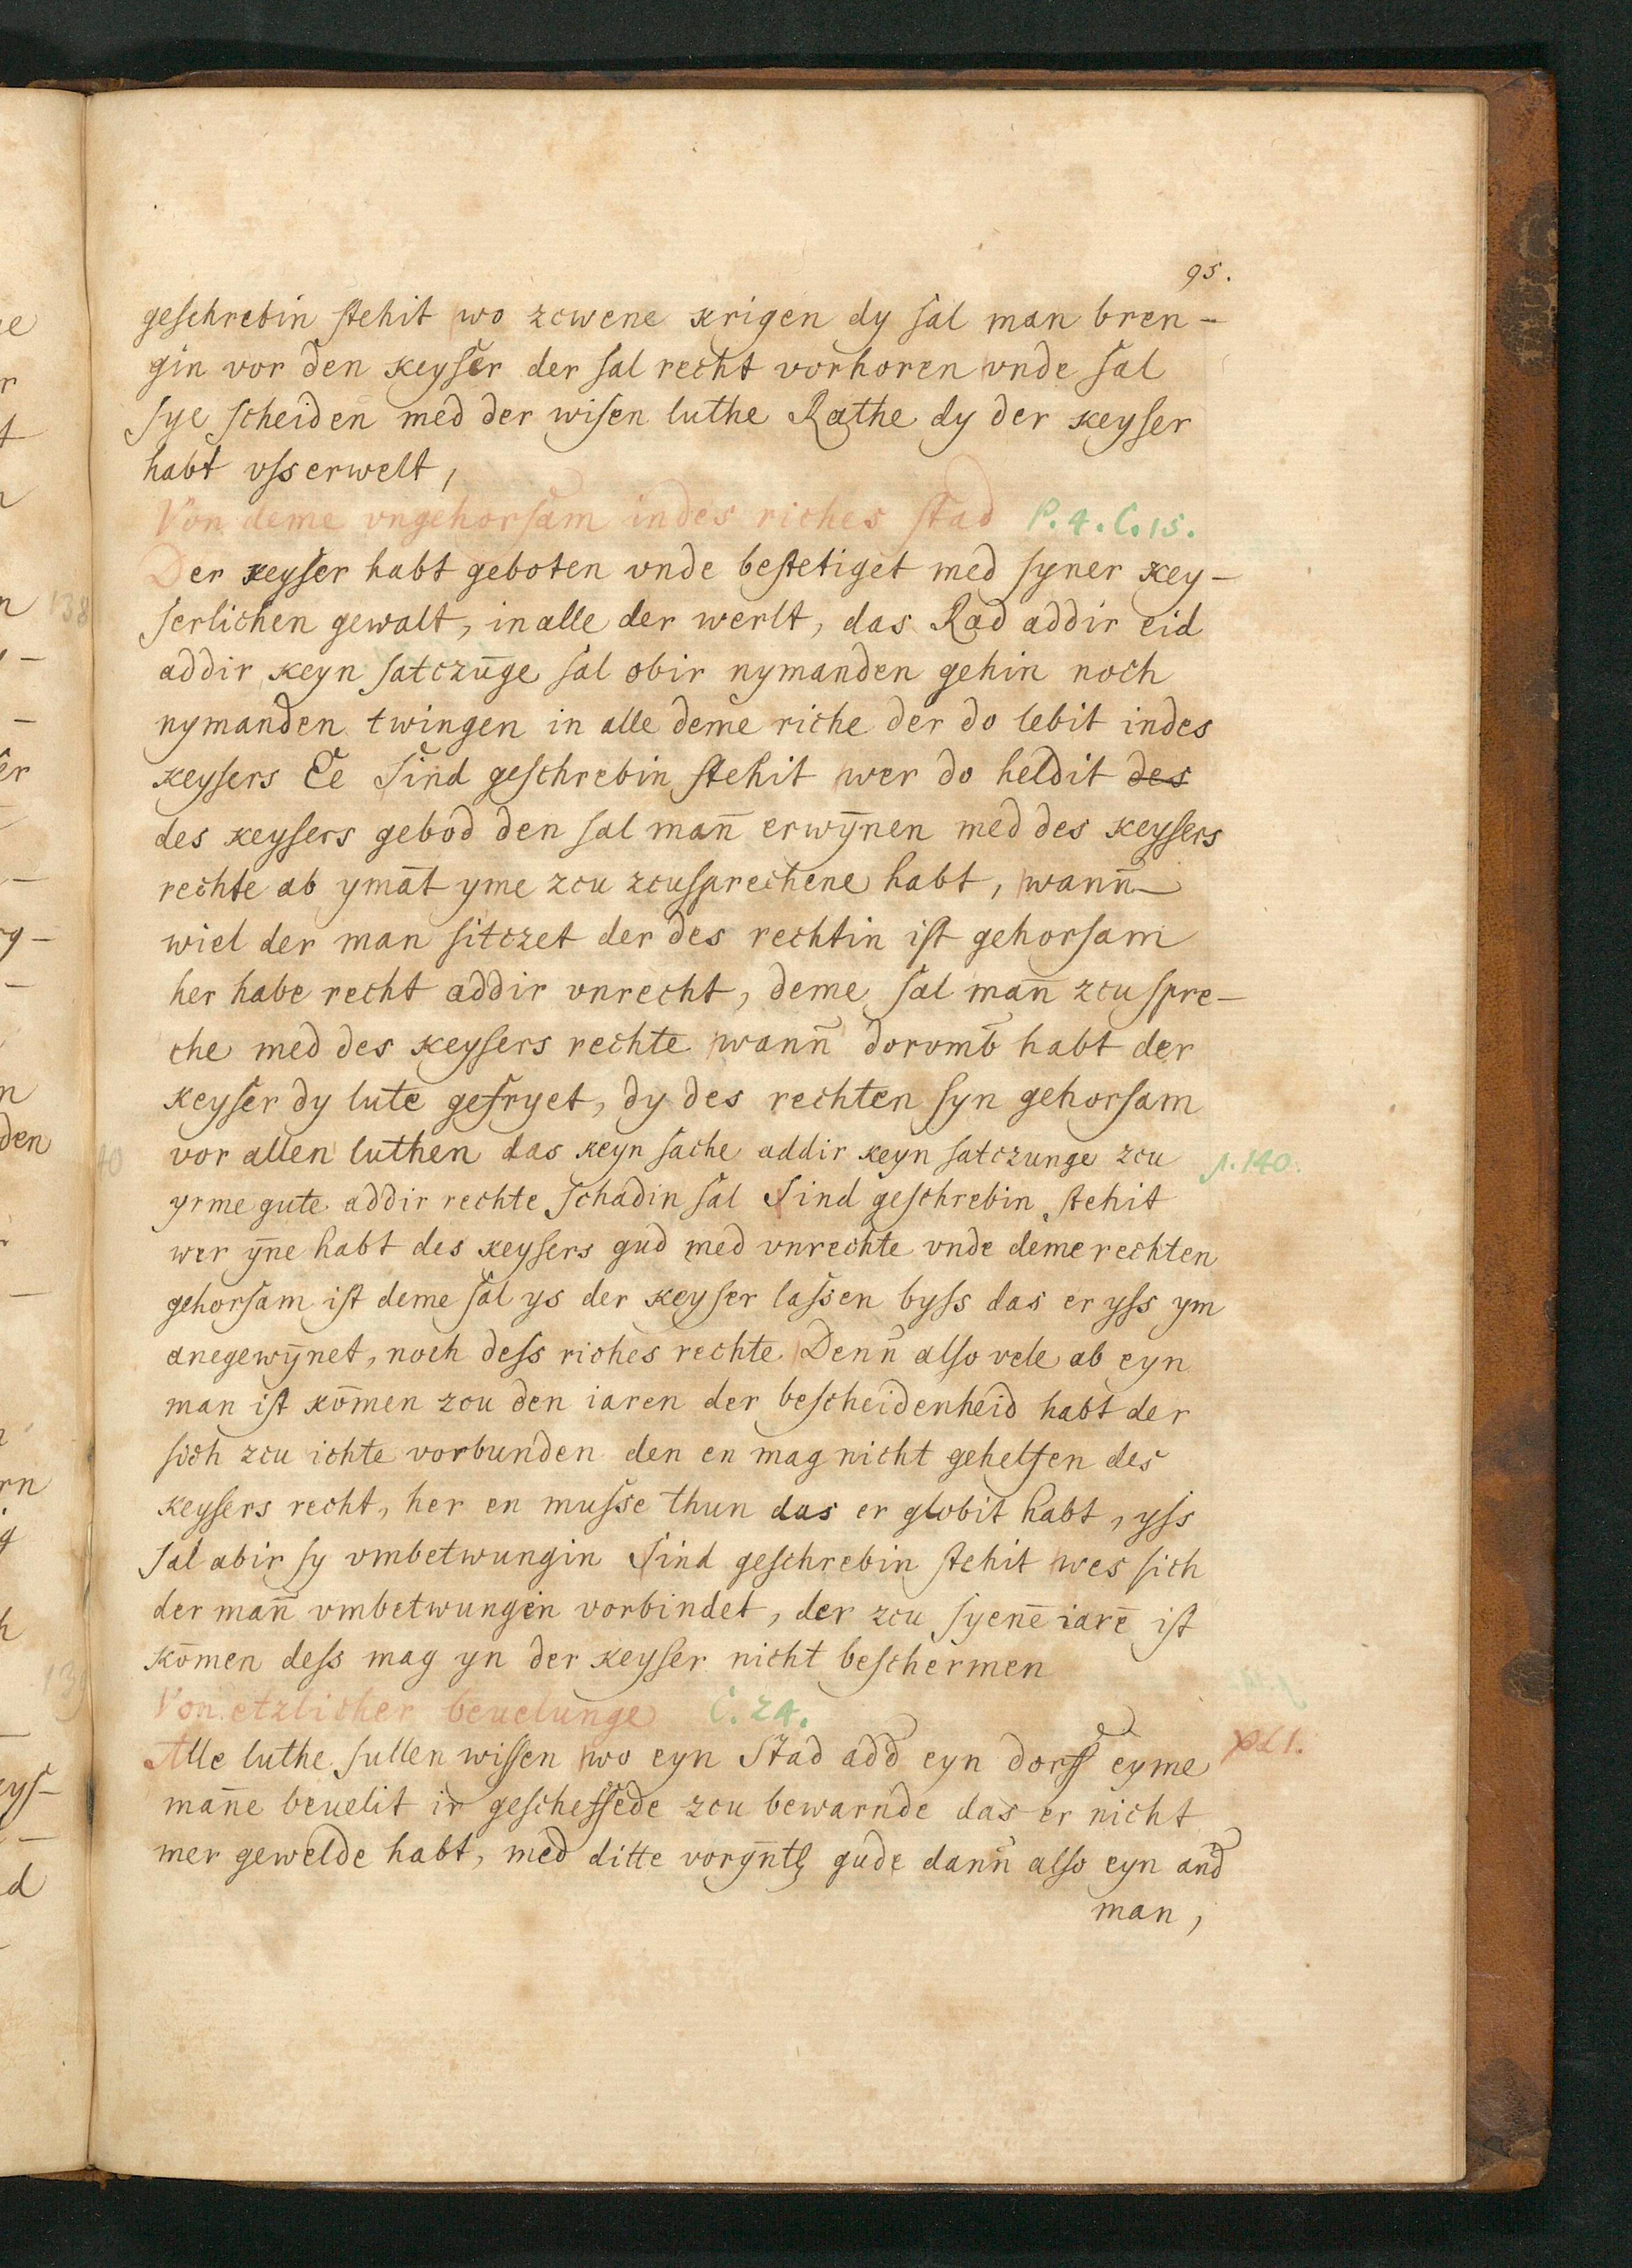 95.
geſchrebin ſtehit wo zcwene krigen dy ſal man bren-
gin vor den keyſer der ſal recht vorhoren vnde ſal
ſye ſcheiden med der wiſen luthe Rathe dy der keyſer
habt vſserwelt,
Von deme vngehorſam indes riches ſtad P. 4. C. 15.
Der keyſer habt geboten vnde beſtetiget med ſyner key-
ſerlichen gewalt, in alle der werlt, das Rad addir eid
addir keyn ſatczūge ſal obir nymanden gehin noch
nymanden twingen in alle deme riche der do lebit indes
keyſers Ee Sind geſchrebin ſtehit wer do heldit des
des keyſers gebod den ſal man̄ erwȳnen med des keyſers
rechte ab ymāt yme zcu zcuſprechene habt, wann̄
wiel der man ſitczet der des rechtin iſt gehorſam
her habe recht addir vnrecht, deme ſal man̄ zcu ſpre-
che med des keyſers rechte wann̄ dorvmb̄ habt der
keyſer dy lute gefryet, dy des rechten ſyn gehorſam
vor allen luthen das keyn ſache addir keyn ſatczunge zcu
p. 140.
yrme gute addir rechte ſchadin ſal Sind geſchrebin ſtehit
wer ȳne habt des keyſers gud med vnrechte vnde deme rechten
gehorſam iſt deme ſal ys der keyſer laſsen byſs das er yſs ym
anegewȳnet, noch deſs riches rechte Denn̄ alſo vele ab eyn
man iſt kōmen zcu den iaren der beſcheidenheid habt der
ſich zcu ichte vorbunden den en mag nicht gehelfen des
keyſers recht, her en muſse thun das er globit habt, yſs
ſal abir ſy vmbetwungin Sind geſchrebin ſtehit wes ſich
der man̄ vmbetwungen vorbindet, der zcu ſyenē iarē iſt
kōmen deſs mag yn der keyſer nicht beſchermen
Von etzlicher beuelunge C. 24.
Alle luthe ſullen wiſſen wo eyn Stad add eyn dorff eyme
man̄e beuelit ir geſcheffede zcu bewarnde das er nicht
mer gewelde habt, med ditte gude dann̄ alſo eyn and
man,